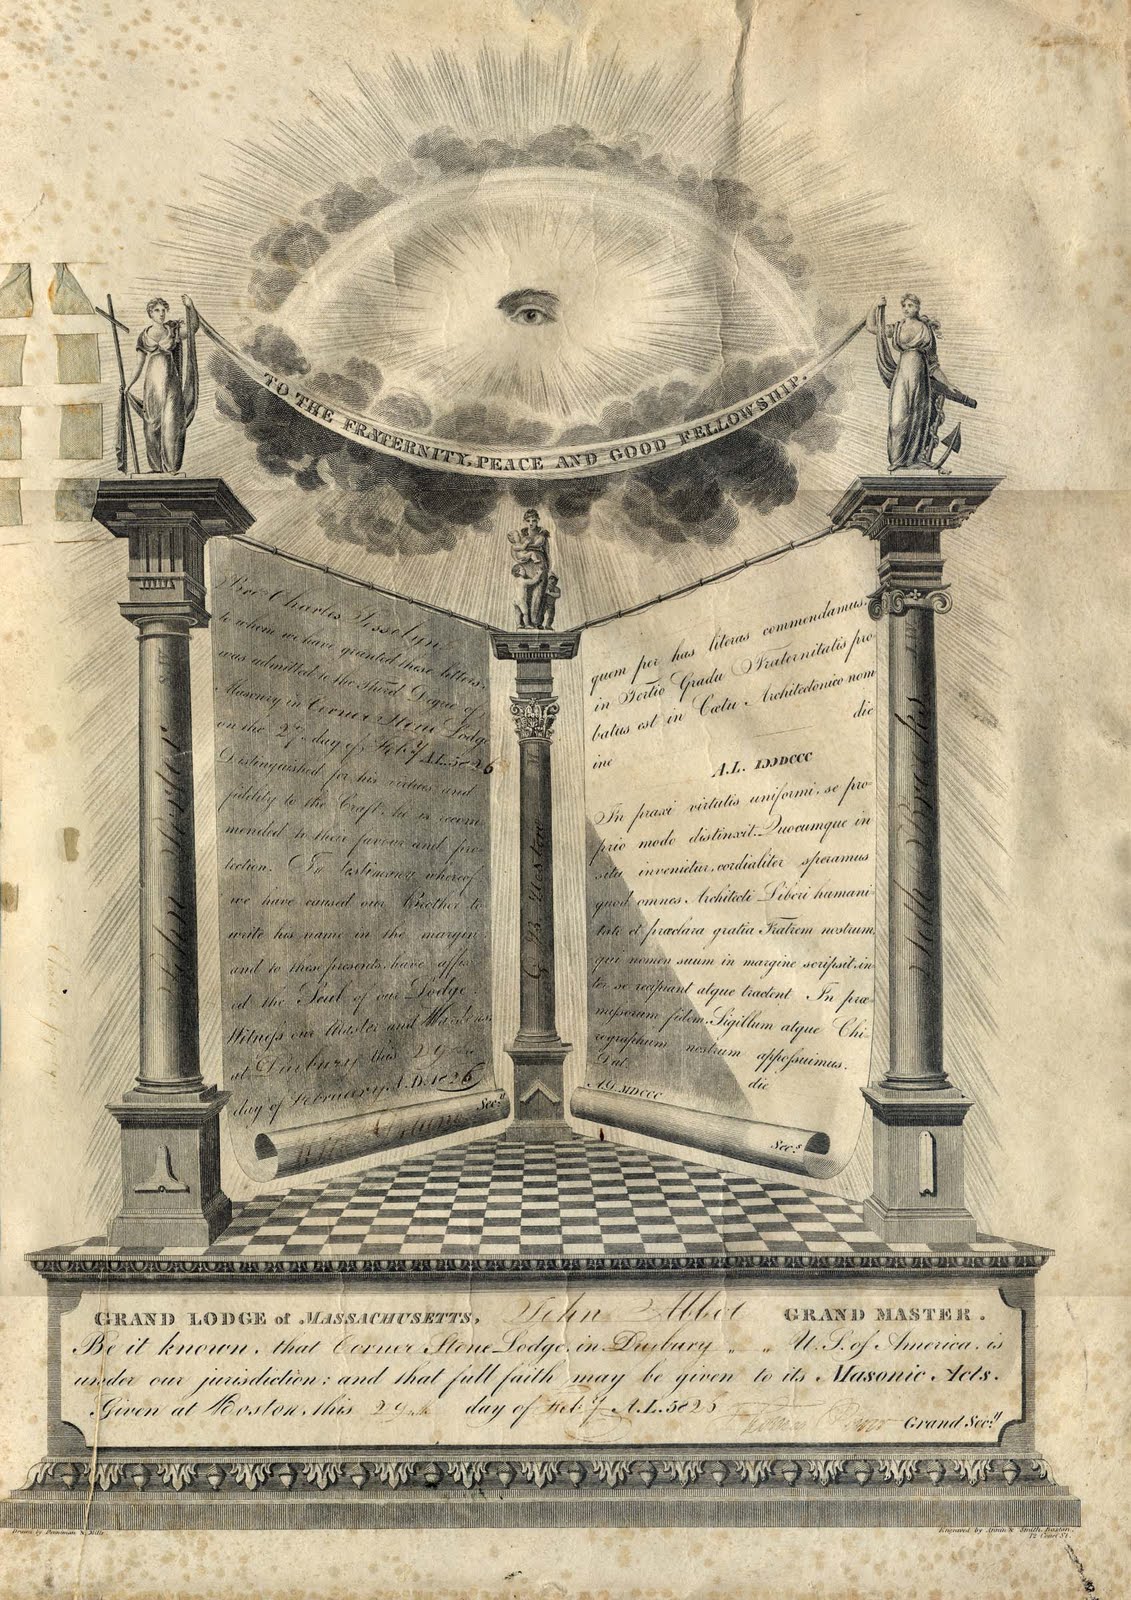 TO THE FRATERNITY, PEACE AND GOOD FELLOWSHIP.
Bro Charles Josselyn
to whom we have granted these letters,
was admitted to the Third Degree of
Masonry in Corner Stone Lodge
on the 27 day of Feby A.L. 5826
Distinguished for his virtues and
fidelity to the Craft, he is recom
mended to there favour and pro
tection. In testimony whereof
we have caused our Brother to
write his name in the margin
and to these presents, have affix
ed the Seal of our Lodge.
Witness our Master and Wardens,
at Duxbury this 29th
day of February A.D. 1826
Secy
John Porter
G. B. Weston
Seth Sprague
quem per has literas commendamus,
in Tertio Gradu Fraternitatis pro
batus est in Cœtu Architectonico nom
ine die
A.L. IↃↃDCCC
In praxi virtutis uniformi, se pro
prio modo distinxit. Quocumque in
situ invenietur, cordialiter speramus
quod omnes Architecti Liberi humani
tate et præclara gratia Fratrem nostrum,
qui nomen suum in margine scripsit, in
ter se recipiant atque tractent In præ
missorum fidem, Sigillum atque Chi-
rographum nostrum appossuimus.
Dat. die
A.D. MDCCC
Secs
GRAND LODGE of MASSACHUSETTS, John Abbot GRAND MASTER.
Be it known, that Corner Stone Lodge, in Duxbury „ „ U.S. of America, is
under our jurisdiction; and that full faith may be given to its Masonic Acts.
Given at Boston, this 29th day of Feby A.L. 582
Thomas Power Grand Secy
Drawn by Penniman & Mills
Engraved by Annin & Smith, Boston,
72 Court St.